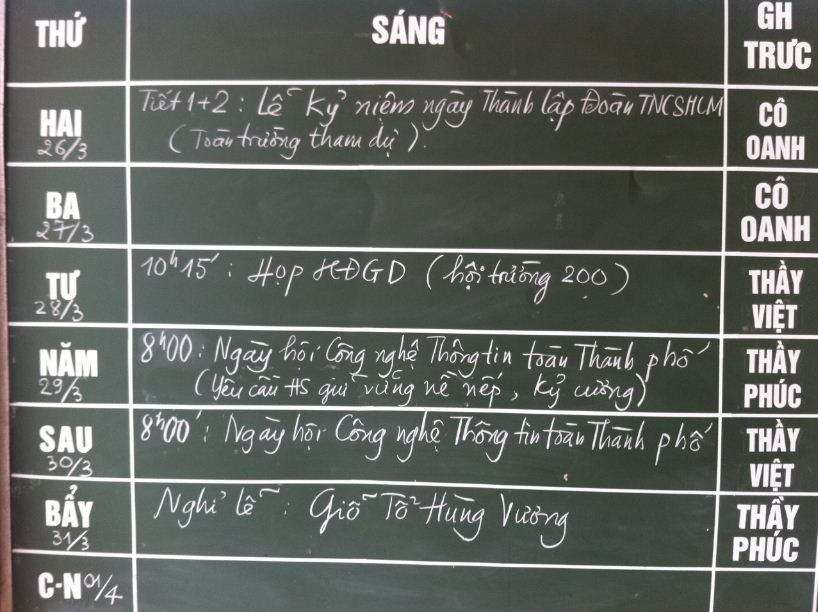 THỨ SÁNG GH TRƯC
HAI 26/3 Tiết 1+2 : Lễ Kỷ niệm ngày Thành lập Đoàn TNCSHCM CÔ OANH
(Toàn trường tham dự).
BA 27/3 CÔ OANH
TƯ 28/3 10h15' : Họp HĐGD (hội trường 200) THẦY VIỆT
NĂM 29/3 8h00 : Ngày hội Công nghệ Thông tin toàn Thành phố THẦY PHÚC
(Yêu cầu HS giữ vững nề nếp, kỷ cương)
SAU 30/3 8h00' : Ngày hội Công nghệ Thông tin toàn Thành phố THẦY VIỆT
BẨY 31/3 Nghỉ lễ : Giỗ Tổ Hùng Vương THẦY PHÚC
C-N 01/4